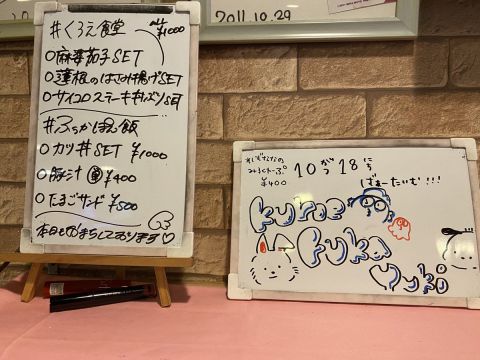 2011.10.29
#くろえ食堂
各¥1000
○麻婆茄子SET
○蓮根のはさみ揚げSET
○サイコロステーキ丼ぶりSET
#ふぅかぽよ飯
○カツ丼SET ¥1000
○豚汁 単 ¥400
○たまごサンド ¥500
本日もお待ちしております♡
¥400
10がつ18にち
ばぁーたいむ!!!
kuroe
fuka
yuki